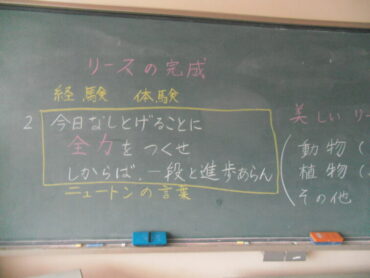 リースの完成
経験 体験
2 今日なしとげることに
全力をつくせ
しからば.一段と進歩あらん
ニュートンの言葉
美しいリー
動物(
植物(
その他